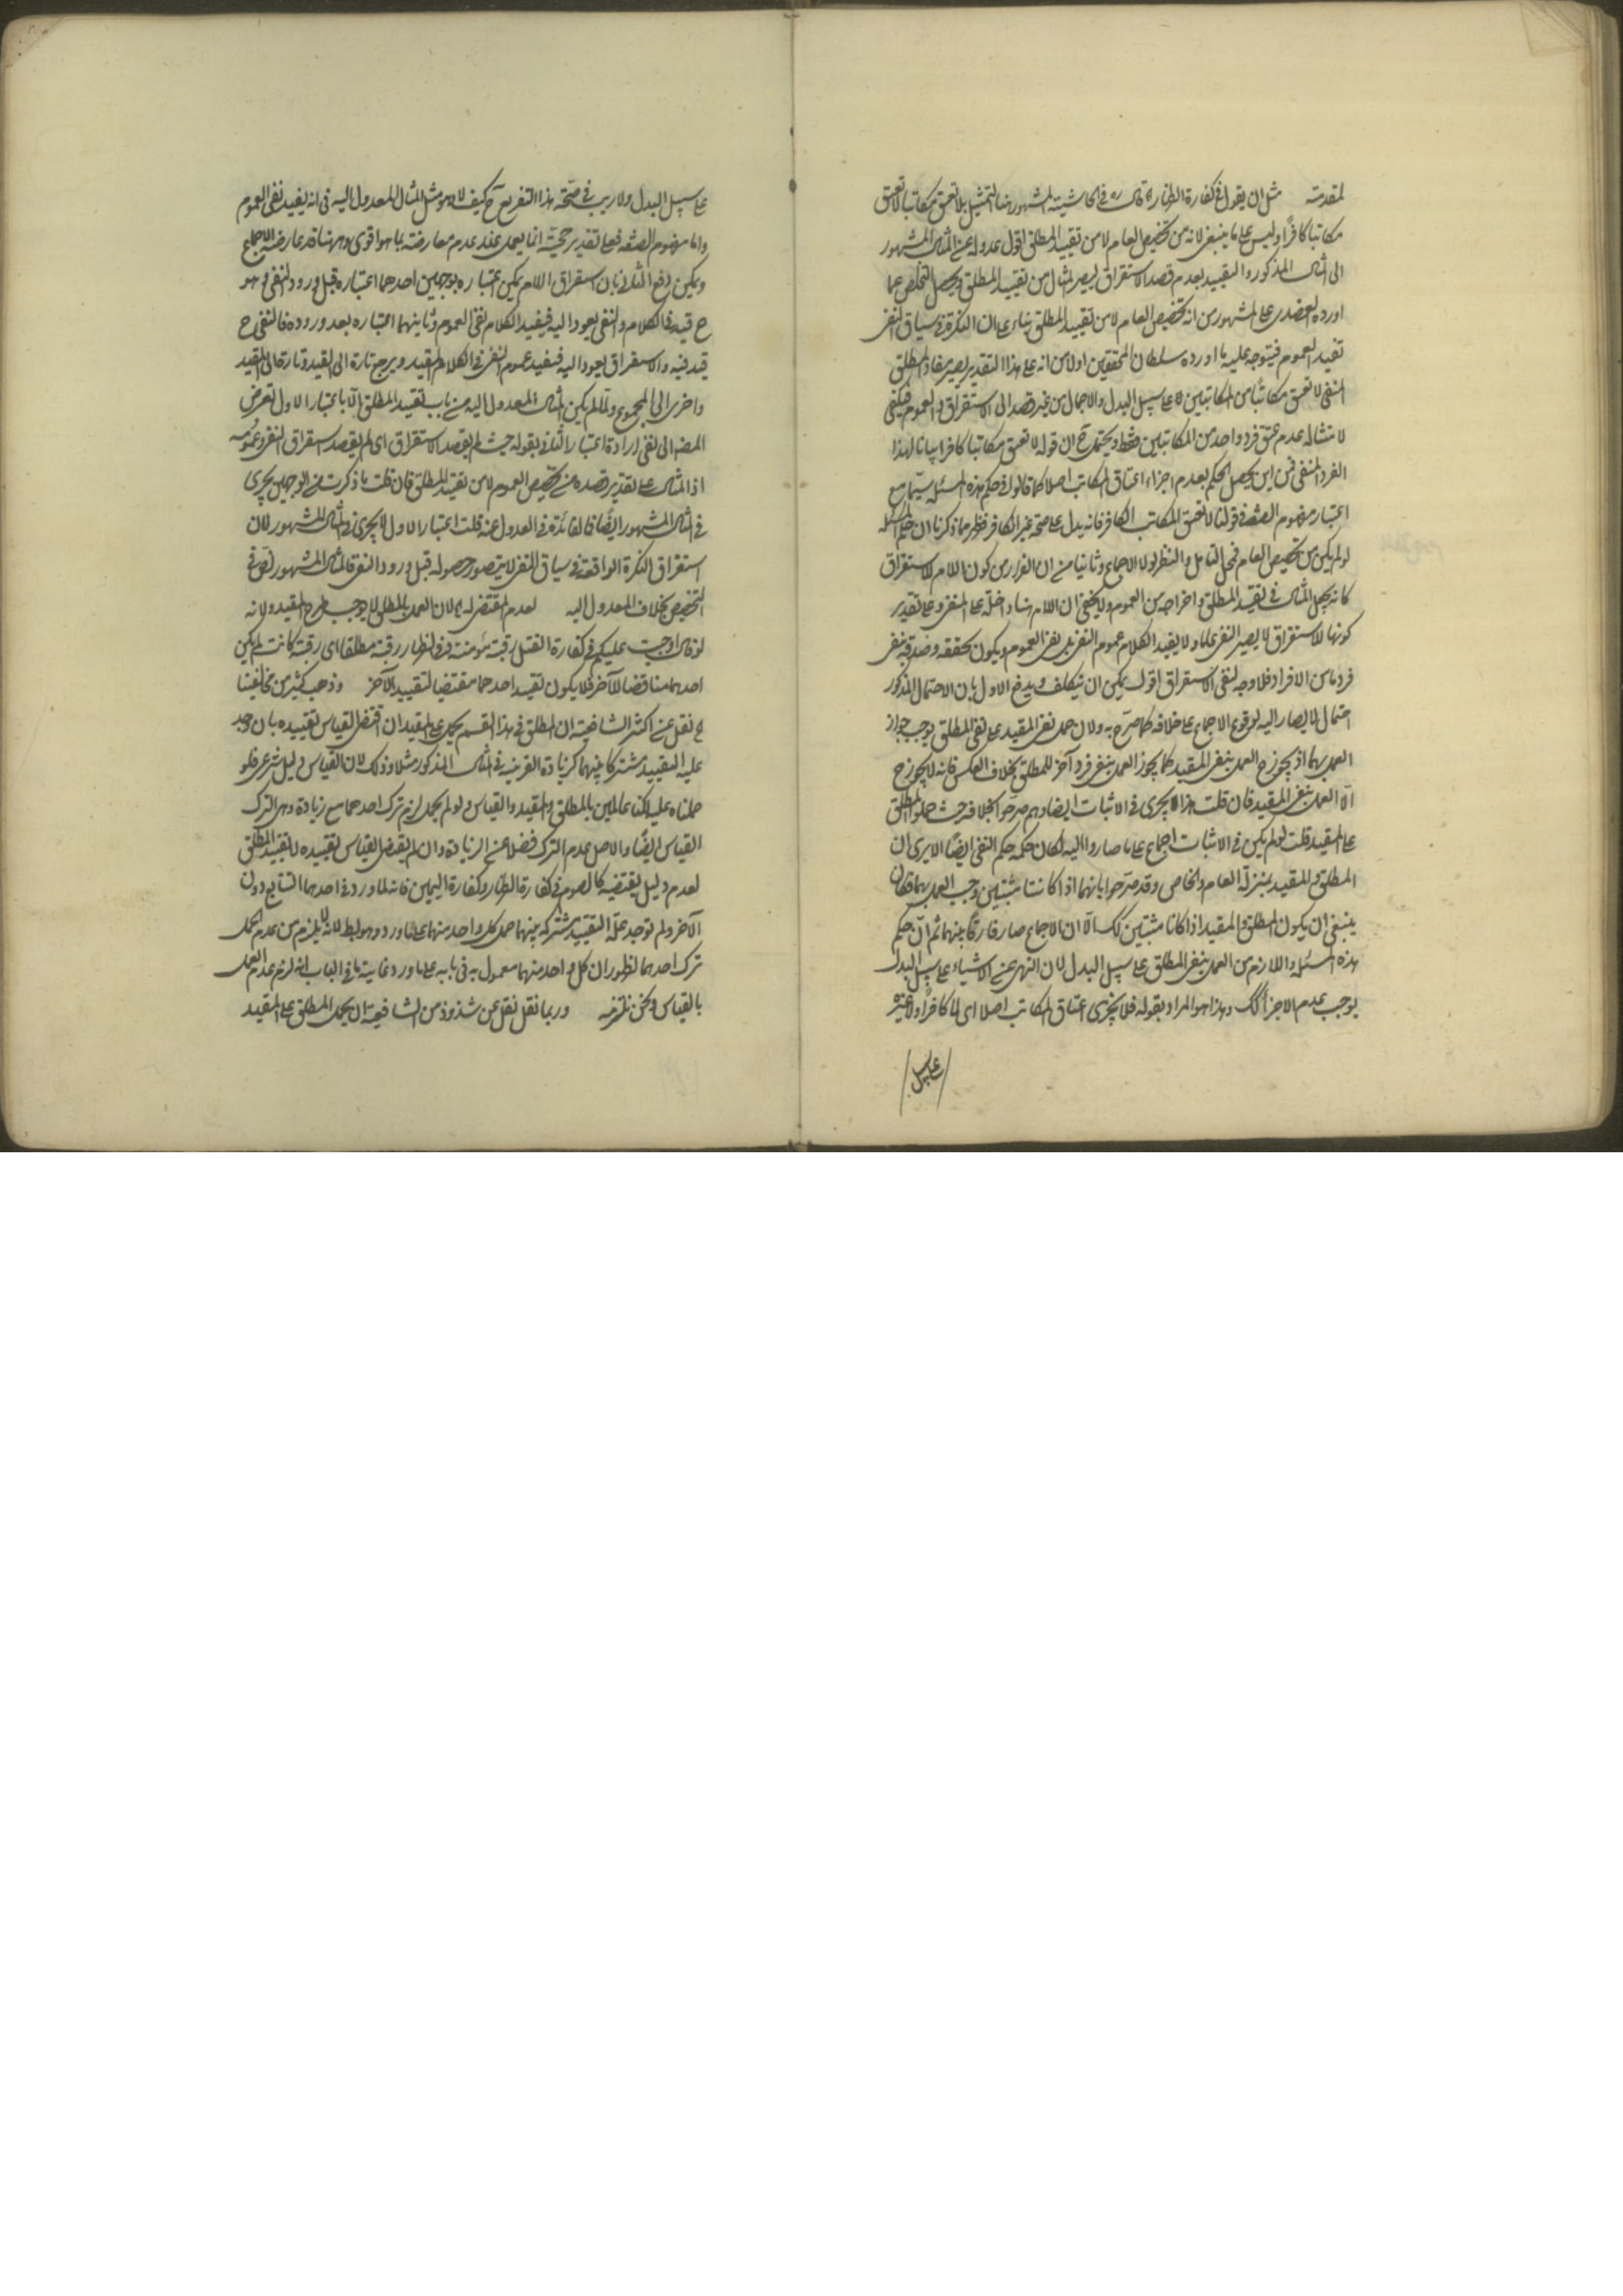 لمقدمته مثل ان يقول في كفارة الظهار اه قال ره في الحاشيته المشهور هنا التمثيل بلا تعتق مكاتبا لا تعتق
مكاتبا كافرا وليس على ما ينبغى لانه من تخصيص العام لا من تقييد المطلق اقول عدوله عن المثال المشهور
الى المثال المذكور والتقييد بعدم قصد الاستغراق ليصير المثال من تقييد المطلق ويحصل التخلص عما
اورده العضدى على المشهور من انه تخصيص العام لا من تقييد المطلق بناء على ان النكرة في سياق النفى
تفيد العموم فيتوجه عليه ما اورده سلطان المحققين اولا من انه على هذا التقدير يصير مفاد المطلق
المنفى لا تعتق مكاتبا من المكاتبين على سبيل البدل والاجمال من غير قصد الى الاستغراق والعموم فيكفى
لامتثاله عدم عتق فرد واحد من المكاتبين فقط ويحتمل ح ان قوله لا تعتق مكاتبا كافرا بيانا لهذا
الفرد المنفى فمن اين يحصل الحكم بعدم اجزاء اعتاق المكاتب اصلا كما قالوا في حكم هذه المسئله سيما مع
اعتبار مفهوم الصفة في قولنا لا تعتق المكاتب الكافر فانه يدل على صحة غير الكافر فظهر مما ذكرنا ان حكم المسئله
لو لم يكن من تخصيص العام فمحل التامل والنظر لولا الاجماع وثانيا من ان الفرار من كون اللام للاستغراق
كانه يجعل المثال في تقييد المطلق واخراجه من العموم ولا يخفى ان اللام هنا داخلة على المنفى وعلى تقدير
كونها للاستغراق لا يصير النفى عاما ولا يفيد الكلام عموم النفى بل نفى العموم ويكون تحققه وصدقه بنفى
فرد ما من الافراد فلا وجه لنفى الاستغراق اقول يمكن ان يتكلف ويدفع الاول بان الاحتمال المذكور
احتمال لا يصار اليه لوقوع الاجماع على خلافه كما صرح به ولان حمل نفى المقيد على نفى المطلق يوجب جواز
العمل بهما اذ يجوز ح العمل بنفى المقيد كما يجوز العمل بنفى فرد آخر للمطلق بخلاف العكس فانه لا يجوز ح
الا العمل بنفى المقيد فان قلت هذا يجرى في الاثبات ايضا وهم صرحوا بخلافه حيث حملوا المطلق
على المقيد قلت لو لم يكن في الاثبات اجماع على ما صاروا اليه لكان حكمه حكم النفى ايضا الا يرى ان
المطلق والمقيد بمنزلة العام والخاص وقد صرحوا بانهما اذا كانتا مثبتين وجب العمل بهما فكان
ينبغى ان يكون المطلق والمقيد اذا كانا مثبتين كك الا ان الاجماع صار فارقا بينهما ثم ان حكم
هذه المسئله واللازم من العمل بنفى المطلق على سبيل البدل لان النهى عن الاشياء على سبيل البدل
يوجب عدم الاجزاء كك وهذا هو المراد بقوله فلا يجزى اعتاق المكاتب اصلا اى لا كافرا ولا غيره
على سبيل
على سبيل البدل ولا ريب في صحة هذا التفريع ح كيف لا وهو مثل المثال المعدول اليه في انه يفيد نفى العموم
واما مفهوم الصفة فعلى تقدير حجيته انما يعمل عند عدم معارضته بما هو اقوى وههنا قد عارضه الاجماع
ويمكن دفع الثانى بان استغراق اللام يمكن اعتباره بوجهين احدهما اعتباره قبل ورود النفى وهو
ح قيد في الكلام والنفى يعود اليه فيفيد الكلام نفى العموم وثانيهما اعتباره بعد وروده فالنفى ح
قيد فيه والاستغراق يعود اليه فيفيد عموم النفى في الكلام المقيد ويرجع تارة الى القيد وتارة الى المقيد
واخرى الى المجموع ولما لم يكن المثال المعدول اليه من باب تقييد المطلق الا باعتبار الاول تعرض
المصه الى نفى ارادة اعتبار الثانى بقوله حيث لم يقصد الاستغراق اى لم يقصد استغراق النفى وعمومه
اذ المثال على تقدير قصده من تخصيص العموم لا من تقييد المطلق فان قلت ما ذكرت من الوجهين يجرى
في المثال المشهور ايضا فما الفائدة في العدول عنه قلت اعتبار الاول لا يجرى في المثال المشهور لان
استغراق النكرة الواقعة في سياق النفى لا يتصور حصوله قبل ورود النفى فالمثال المشهور نص في
التخصيص بخلاف المعدول اليه لعدم المقتضى له اه لان العمل بالمطلق لا يوجب طرح المقيد ولانه
لو قال اوجبت عليكم في كفارة القتل رقبة مؤمنة وفي الظهار رقبة مطلقا اى رقبة كانت لم يكن
احدهما مناقضا للآخر فلا يكون تقييد احدهما مقتضيا لتقييد الآخر وذهب كثير من مخالفينا
ح نقل عن اكثر الشافعية ان المطلق في هذا القسم يحمل على المقيد ان اقتضى القياس تقييده بان وجد
عليه التقييد مشتركا بينهما كزيادة القربه في المثال المذكور مثلا وذلك لان القياس دليل شرعى فلو
حملناه عليه لكنا عاملين بالمطلق والمقيد والقياس ولو لم يحمل لزم ترك احدهما مع زيادة وهى الترك
القياس ايضا والاصل عدم الترك فضلا عن الزيادة وان لم يقتض القياس تقييده لا تقييد المطلق
لعدم دليل يقتضيه كالصوم في كفارة الظهار وكفارة اليمين فانه لما ورد في احدهما التتابع دون
الآخر ولم توجد علة التقييد مشتركة بينهما حمل كل واحد منهما على ما ورد وهو بط لانه لا يلزم من عدم الحمل
ترك احدهما لظهور ان كل واحد منهما معمول به في بابه على ما ورد غاية ما في الباب انه لزم عدم العمل
بالقياس ونحن نلتزمه وربما نقل نقل عن شذوذ من الشافعية ان يحمل المطلق على المقيد